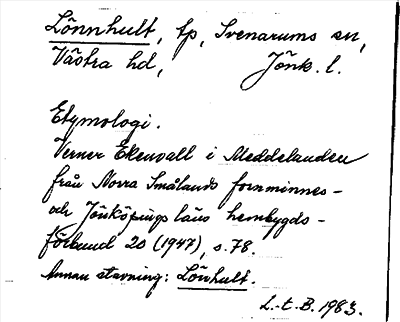 Lönnhult, tp, Svenarums sn,
Västra hd, Jönk. l.
Etymologi.
Verner Ekenvall i Meddelanden
från Norra Smålands fornminnes-
och Jönköpings läns hembygds-
förbund 20 (1947), s. 78.
Annan stavning: Lönhult.
L.-t. B. 1983.